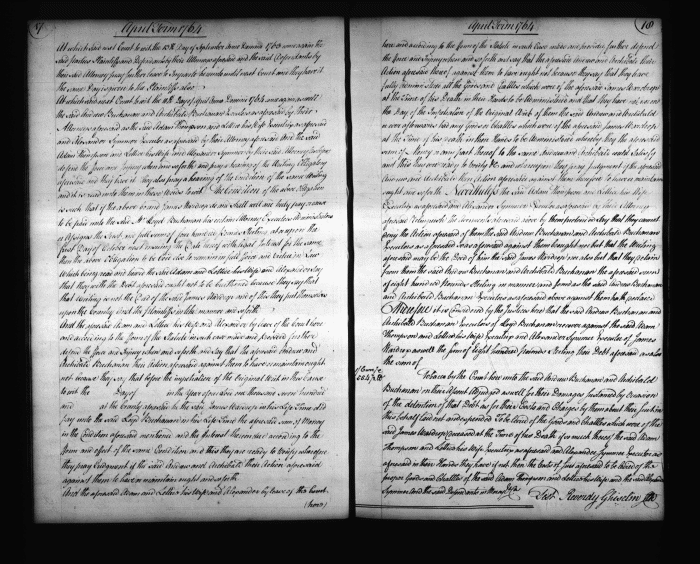 April Term 1764
At which said next Court to wit the 13th Day of September Anno Domini 1763 came again the
said parties Plaintiffs and Defendants by their Attorneys aforesaid and the said Defendants by
their said Attorney pray further leave to Imparle here until next Court and they have it
the same Day is given to the Plaintiffs also
At which said next Court to wit the Day of April Anno Domini 1764 came again as well
the said Andrew Buchanan and Archibald Buchanan Executors as aforesaid by their
Attorney aforesaid as the said Adam Thompson and Lettice his Wife Executrix as aforesaid
and Alexander Symmer Executor as aforesaid by their Attorney aforesaid And the said
Adam Thompson and Lettice his Wife and Alexander Symmer by their said Attorney
defend the force and Injury when and pray a hearing of the Writing Obligatory
aforesaid and they have it they also pray a hearing of the Condition of the same Writing
and it is read unto them in these Words to wit The Condition of the above Obligation
is such that if the above bound James Wardrop do and shall well and truly pay or cause
to be paid unto the said Mr Lloyd Buchanan his certain Attorney Executors Administrators
or Assigns the Just and full sum of four hundred Pounds Sterling at or upon the
first Day of October next ensuing the Date hereof with legal Interest for the same
then the above Obligation to be void else to remain in full force and virtue in Law
Which being read and heard the said Adam and Lettice his Wife and Alexander say
that they with the Debt aforesaid ought not to be burthened because they say that
that Writing is not the Deed of the said James Wardrop and of this they put themselves
upon the Country and the Plaintiffs in like manner
And the aforesaid Adam and Lettice his Wife and Alexander by leave of the Court here
and according to the form of the Statute in such Case made and provided further
defend the force and Injury when and and say that the aforesaid Andrew and
Archibald Buchanan their Action aforesaid against them to have or maintain ought
not because they say that before the impetration of the Original Writ in this Cause
to wit the Day of in the Year of our one thousand seven hundred
and at the County aforesaid he the said James Wardrop in his Life Time did
pay unto the said Lloyd Buchanan in his Life Time the aforesaid sum of Money
in the Condition aforesaid mentioned and the Interest thereon due according to the
form and effect of the same Condition and this they are ready to verify whereof
they pray Judgment if the said Andrew and Archibald their Action aforesaid
against them to have or maintain ought
And the aforesaid Adam and Lettice his Wife and Alexander by leave of the Court
(here)
April Term 1764
18
here and according to the form of the Statute in such Case made and provided further defend
the force and Injury when and and say that the aforesaid Andrew and Archibald their
Action aforesaid thereof against them to have ought not because they say that they have
fully Administered all the Goods and Chattles which were of the aforesaid James Wardrop
at the Time of his Death in their Hands to be Administered and that they have not nor on
the Day of the Impetration of the Original Writ of them the said Andrew and Archibald
or ever afterwards had any Goods or Chattles which were of the aforesaid James Wardrop
at the Time of his Death in their Hands to be Administered whereby they the aforesaid
sum of Money or any part thereof to the said Andrew and Archibald
and this they are ready to verify they pray Judgment if the aforesaid
Andrew and Archibald their Action aforesaid against them thereof to have or maintain
ought Nevertheless the said Adam Thompson and Lettice his Wife
Executrix as aforesaid and Alexander Symmer Executor as aforesaid by their Attorney
aforesaid relinquish the several Pleas above by them pleaded and say that they cannot
gainsay the Action aforesaid of them the said Andrew Buchanan and Archibald Buchanan
Executors as aforesaid as aforesaid against them brought nor but that the Writing
aforesaid may be the Deed of him the said James Wardrop nor also but that they detain
from them the said Andrew Buchanan and Archibald Buchanan the aforesaid sum
of eight hundred Pounds Sterling in manner and form as the said Andrew Buchanan
and Archibald Buchanan Executors as aforesaid above against them hath declared
Therefore it is Considered by the Justices here that the said Andrew Buchanan and
Archibald Buchanan Executors of Lloyd Buchanan recover against the said Adam
Thompson and Lettice his Wife Executrix and Alexander Symmer Executor of James
Wardrop as well the sum of eight hundred Pounds Sterling their Debt aforesaid as also
the sum of
Tobacco by the Court here unto the said Andrew Buchanan and Archibald
Buchanan on their Assent Adjudged as well for their Damages sustained by Occasion
of the detention of that Debt as for their Costs and Charges by them about their Suit in
this behalf laid out and expended To be levied of the Goods and Chattles which were of the
said James Wardrop deceased at the Time of his Death if so much thereof the said Adam
Thompson and Lettice his Wife Executrix as aforesaid and Alexander Symmer Executor as
aforesaid in their Hands they have if not then the Costs of Suit aforesaid to be levied of the
proper Goods and Chattles of the said Adam Thompson and Lettice his Wife and the said Alexander
Symmer and the said Defendants in Mercy
Test Reverdy Ghiselin